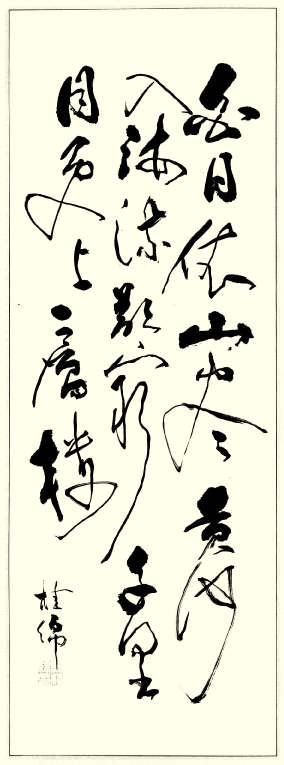 白日依山尽黄河
入海流欲窮千里
目更上一層楼
桂绵